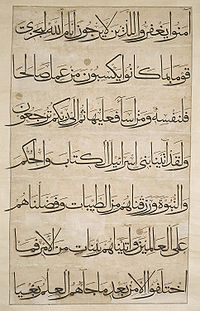 امنوا يغفروا للذين لا يرجون ايام الله ليجزي
قوما بما كانوا يكسبون من عمل صالحا
فلنفسه ومن اسا فعليها ثم الى ربكم ترجعون
ولقد اتينا بني اسرائيل الكتاب والحكم
والنبوة ورزقناهم من الطيبات وفضلناهم
على العالمين واتيناهم بينات من الامر فما
اختلفوا الا من بعد ما جاهم العلم بغيا